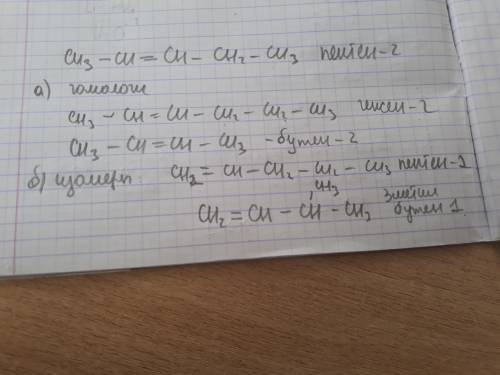 CH3 - CH = CH - CH2 - CH3 пентен-2
а) гомологи
CH3 - CH = CH - CH2 - CH2 - CH3 гексен-2
CH3 - CH = CH - CH3 - бутен-2
б) изомеры CH2 = CH - CH2 - CH2 - CH3 пентен-1
CH3
CH2 = CH - CH - CH3 3метил
бутен 1